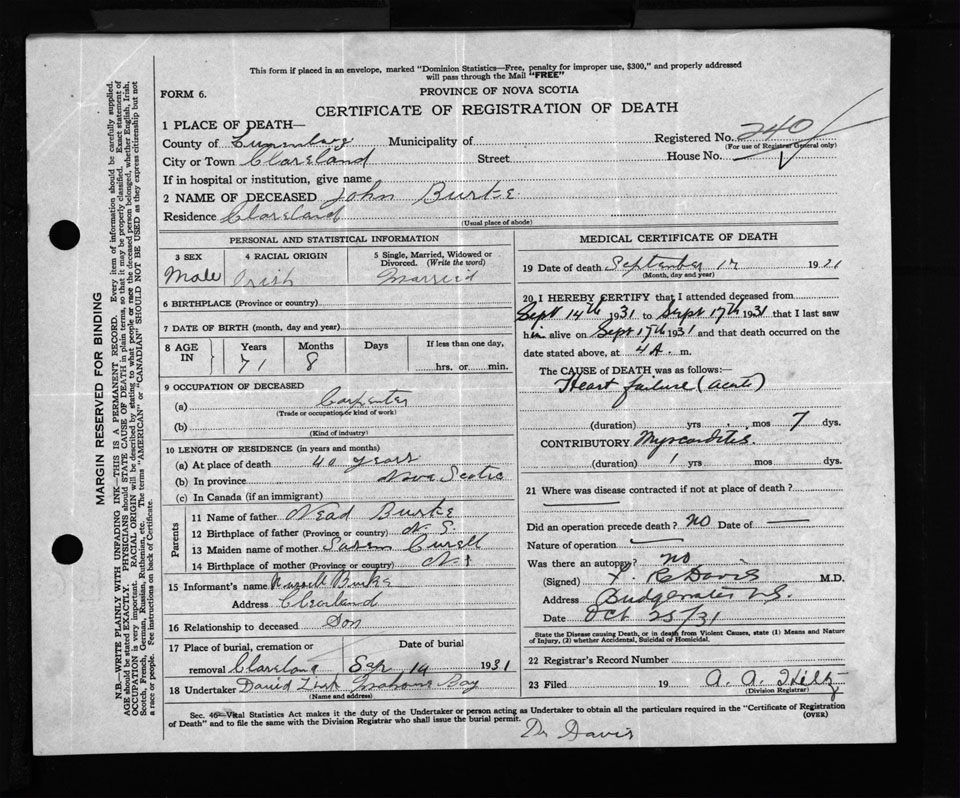 This form if placed in an envelope, marked "Dominion Statistics—Free, penalty for improper use, $300," and properly addressed
will pass through the Mail "FREE"
FORM 6.
PROVINCE OF NOVA SCOTIA
CERTIFICATE OF REGISTRATION OF DEATH
1 PLACE OF DEATH—
Registered No. 240
(For use of Registrar General only)
County of Lunenburg Municipality of
City or Town Clareland Street House No.
If in hospital or institution, give name
2 NAME OF DECEASED John Burke
Residence Clareland
(Usual place of abode)
PERSONAL AND STATISTICAL INFORMATION
3 SEX 4 RACIAL ORIGIN 5 Single, Married, Widowed or
Divorced. (Write the word)
Male Irish Married
6 BIRTHPLACE (Province or country)
7 DATE OF BIRTH (month, day and year)
8 AGE IN Years Months Days If less than one day,
71 8 hrs. or min.
9 OCCUPATION OF DECEASED
(a) Carpenter
(Trade or occupation or kind of work)
(b)
(Kind of industry)
10 LENGTH OF RESIDENCE (in years and months)
(a) At place of death 40 years
(b) In province Nova Scotia
(c) In Canada (if an immigrant)
Parents
11 Name of father Nead Burke
12 Birthplace of father (Province or country) N. S.
13 Maiden name of mother
14 Birthplace of mother (Province or country) N S
15 Informant's name Burke
Address
16 Relationship to deceased Son
17 Place of burial, cremation or Date of burial
removal Clareland Sep 19 1931
18 Undertaker David Bay
(Name and address)
MEDICAL CERTIFICATE OF DEATH
19 Date of death September 17 1931
(Month, day and year)
20 I HEREBY CERTIFY that I attended deceased from
Sept 14th 1931 to Sept 17th 1931 that I last saw
him alive on Sept 17th 1931 and that death occurred on the
date stated above, at 4 A. m.
The CAUSE of DEATH was as follows:—
Heart failure (acute)
(duration) yrs mos 7 dys.
CONTRIBUTORY Myocarditis
(duration) 1 yrs mos dys.
21 Where was disease contracted if not at place of death?
Did an operation precede death? no Date of —
Nature of operation —
Was there an autopsy? no
(Signed) R C Davis M.D.
Address Bridgewater N.S.
Date Oct 25/31
State the Disease causing Death, or in death from Violent Causes, state (1) Means and Nature
of Injury, (2) whether Accidental, Suicidal or Homicidal.
22 Registrar's Record Number
23 Filed 19 A. A. Hiltz
(Division Registrar)
Sec. 46—Vital Statistics Act makes it the duty of the Undertaker or person acting as Undertaker to obtain all the particulars required in the "Certificate of Registration
of Death" and to file the same with the Division Registrar who shall issue the burial permit.
(OVER)
Dr Davis
MARGIN RESERVED FOR BINDING
N.B.—WRITE PLAINLY WITH UNFADING INK—THIS IS A PERMANENT RECORD. Every item of information should be carefully supplied.
AGE should be stated EXACTLY. PHYSICIANS should STATE CAUSE OF DEATH in plain terms, so that it may be properly classified. Exact statement of
OCCUPATION is very important. RACIAL ORIGIN will be described by stating to what people or race the deceased person belonged, whether English, Irish,
Scotch, French, German, Russian, Ruthenian, etc. The terms "AMERICAN" or "CANADIAN" SHOULD NOT BE USED as they express citizenship but not
a race or people. See instructions on back of Certificate.